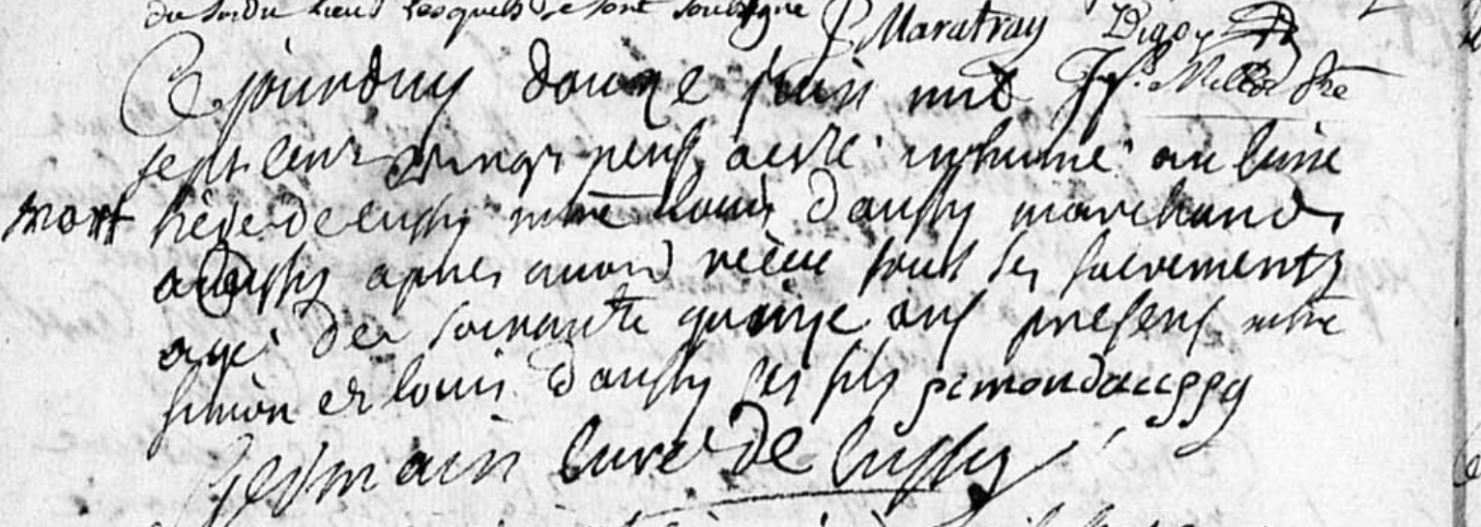 du susdit lieu lesquels se sont soubsigné P Maratray Digoy
Cejourduy douze juin mil
sept cent vingt neuf a esté inhumé au cime
mort tière de cussy mtre louis daussy marchand
a Cussy apres avoir reçeu tout ses sacrements
agé de soixante quinze ans presens mtre
simon et louis daussy ses fils simondaussy
Germain curé de Cussy